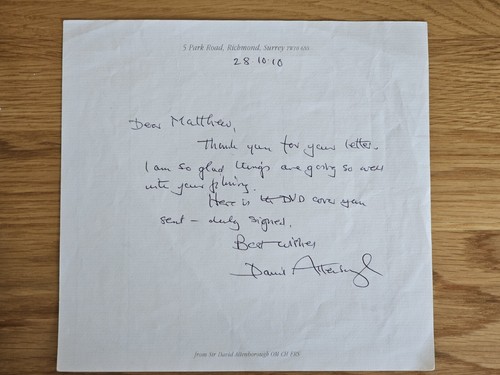 5 Park Road, Richmond, Surrey
28.10.10
Dear Matthew,
Thank you for your letter.
I am so glad things are going so well
with your filming.
Here is DVD cover you
sent – duly signed.
Best wishes
David Attenborough
from Sir David Attenborough OM CH FRS